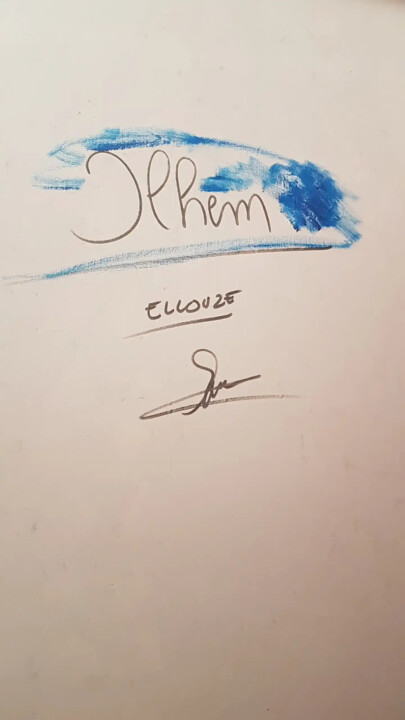 Ilhem
ELLOUZE